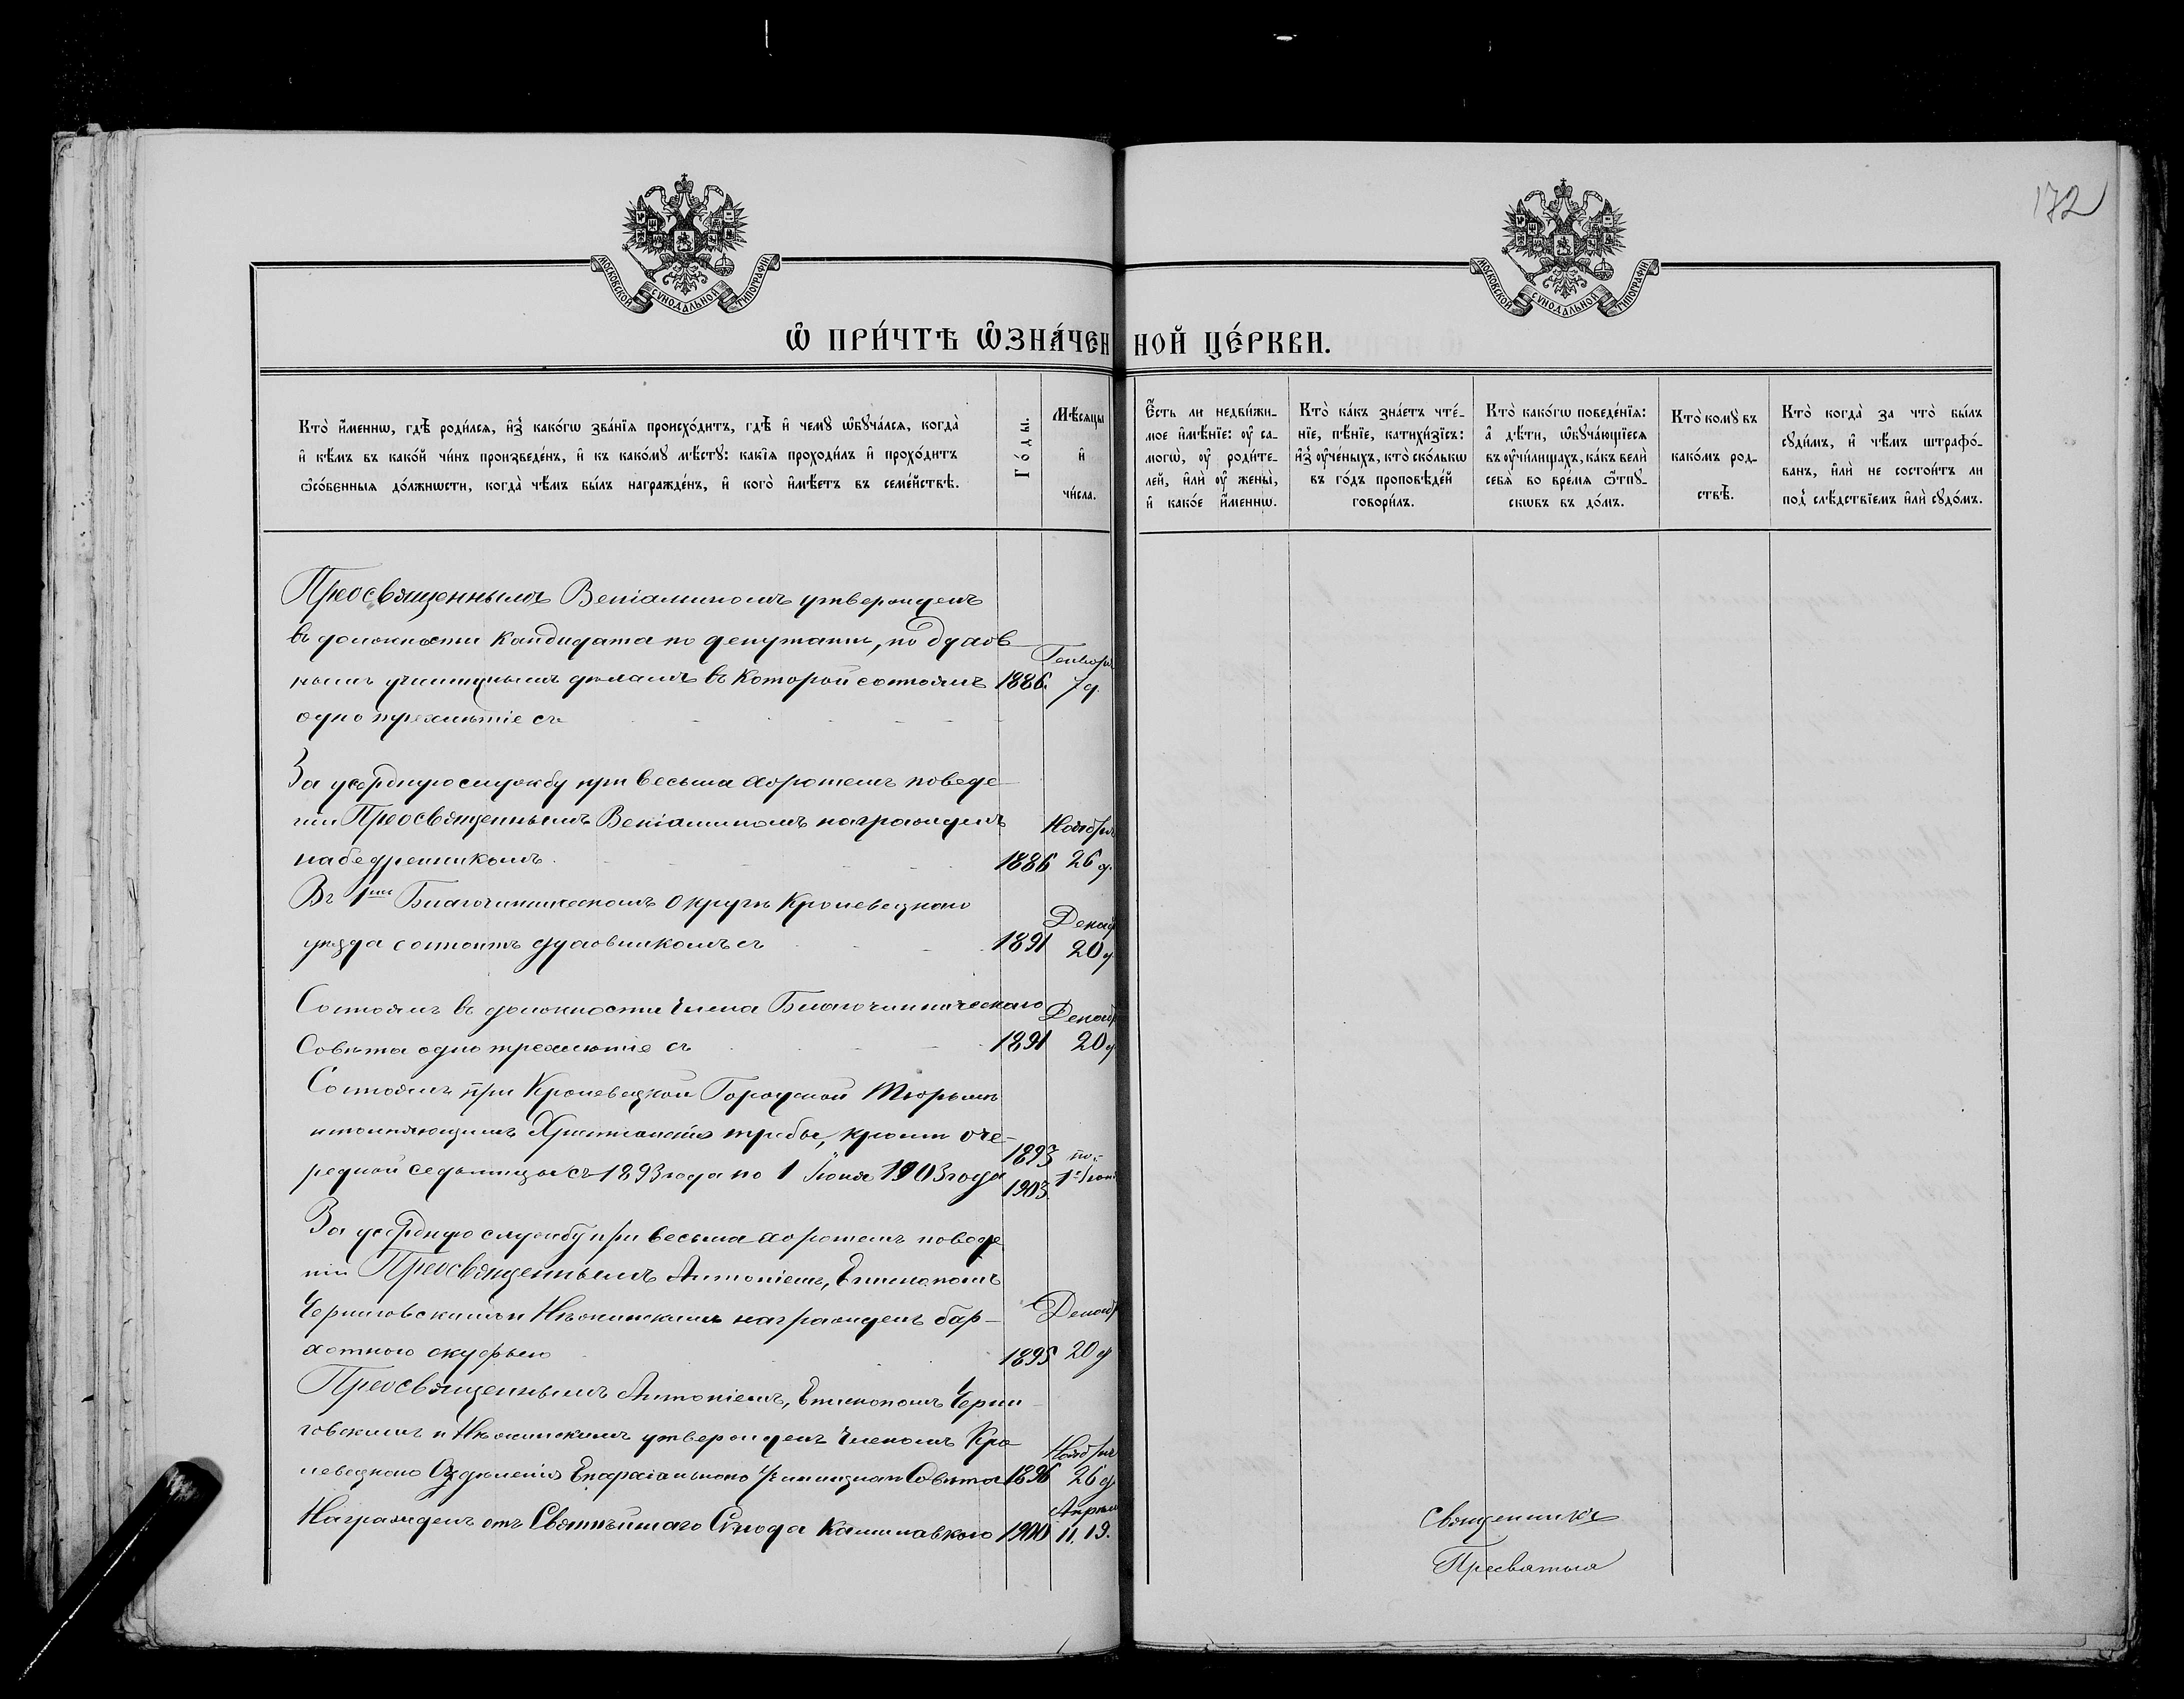 172
МОСКОВСКОЙ СѴНОДАЛЬНОЙ ТИПОГРАФІИ
МОСКОВСКОЙ СѴНОДАЛЬНОЙ ТИПОГРАФІИ
Ѡ ПРИ́ЧТѢ ѠЗНА́ЧЕННОЙ ЦЕ́РКВИ.
Кто̀ и҆́менно, гдѣ̀ роди́лся, и҆з̾ како́гѡ зва́нїѧ происхо́дитъ, гдѣ̀ и҆ чемꙋ̀ ѡ҆бꙋча́лся, когда̀
и҆ кѣ́мъ въ како́й чи́нъ произведе́нъ, и҆ къ како́мꙋ мѣ́стꙋ: какі̑ѧ проходи́лъ и҆ прохо́дитъ
ѻ҆со́бенныѧ до́лжнѡсти, когда̀ чѣ́мъ бы́лъ награжде́нъ, и҆ кого̀ и҆мѣ́етъ въ семе́йствѣ.
Го́ды.
Мѣ́сяцы
и҆
чи́сла.
Є҆́сть ли недви́жи-
мое и҆мѣ́нїе: ᲂу҆ са-
могѡ̀, ᲂу҆ роди́те-
лей, и҆лѝ ᲂу҆ жены̀,
и҆ како́е и҆́меннѡ.
Кто̀ ка́къ зна́етъ чте́-
нїе, пѣ́нїе, катихи́зїсъ:
и҆з̾ ᲂу҆че́ныхъ, кто̀ ско́лькѡ
въ го́дъ проповѣ́дей
говори́лъ.
Кто̀ како́гѡ поведе́нїѧ:
а҆ дѣ́ти, ѡ҆бꙋча́ющїесѧ
въ ᲂу҆чи́лищахъ, ка́къ велѝ
себѧ̀ во вре́мѧ ѿпꙋ-
скѡвъ въ до́мъ.
Кто̀ комꙋ̀ въ
како́мъ род-
ствѣ̀.
Кто̀ когда̀ за что̀ бы́лъ
сꙋди́мъ, и҆ чѣ́мъ штрафо́-
ванъ, и҆лѝ не состои́тъ ли
под̾ слѣ́дствїемъ и҆лѝ сꙋдо́мъ.
Преосвященнымъ Веніаминомъ утвержденъ
въ должности Кандидата по депутати, по Духов
нымъ училищнымъ дѣламъ въ которой состоялъ 1886. Генваря 7 д.
одно трехлѣтіе съ
За усердную службу при весьма хорошемъ поведе-
ніи Преосвященнымъ Веніаминомъ награжденъ Ноября
набедренникомъ. 1886 26 д.
Въ 1мъ Благочинническомъ Округѣ Кролевецкого
уѣзда состоитъ духовникомъ съ 1891 Декаб 20 д
Состоялъ въ должности Члена Благочинническаго
Совѣта одно трехлѣтіе съ 1891 Декаб 20 д
Состоялъ при Кролевецкой Городской Тюрьмѣ
исполняющимъ Христіанскія требы, кромѣ оче-
редной седьмицы съ 1893 года по 1 Іюня 1903 года 1893 по 1903. 1е Іюн
За усердную службу при весьма хорошемъ поведе
ніи Преосвященнымъ Антоніемъ, Епископомъ
Черниговскимъ и Нѣжинскимъ награжденъ бар-
хатною скуфьею 1895 Декаб 20 д
Преосвященнымъ Антоніемъ, Епископомъ Черни-
говскимъ и Нѣжинскимъ утвержденъ Членомъ Кро
левецкого Отдѣленія Епархіальнаго Училищнаго Совѣта 1896 Ноября 26 д.
Награжденъ отъ Святѣйшаго Сѵнода Камилавкою 1900 Апрѣл 11. 19.
Священникъ
Пресвятыя